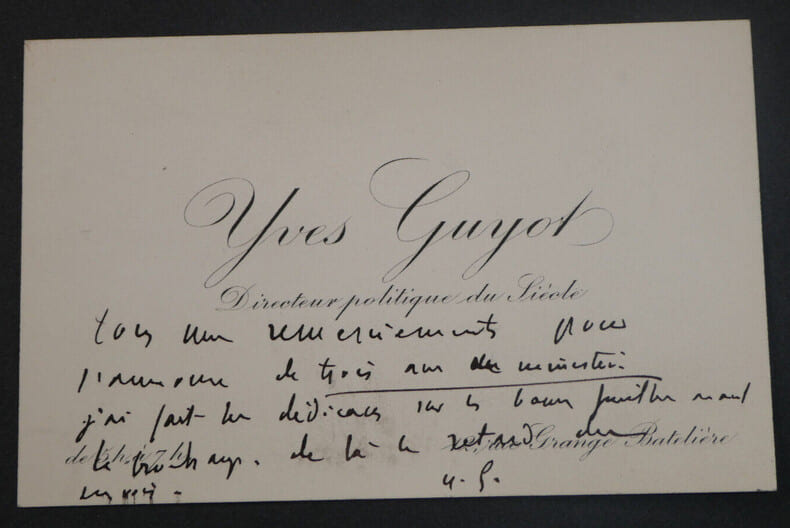 Yves Guyot
Directeur politique du Siècle
tous mes remerciements pour
l'annonce de trois ans de ministère.
j'ai fait les dédicaces sur les bonnes feuilles avant
le brochage. de là le retard des
envois.
de 5h à 7h
rue Grange Batelière
y. G.